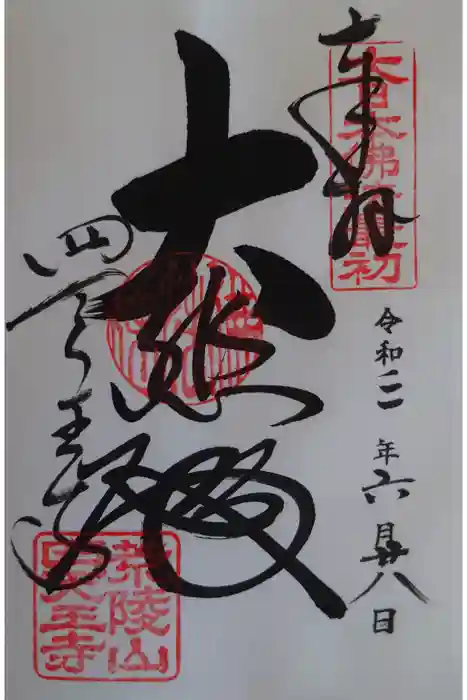 大日本佛法最初
奉拝
令和二年六月廿八日
大悲殿
四天王寺
荒陵山
四天王寺